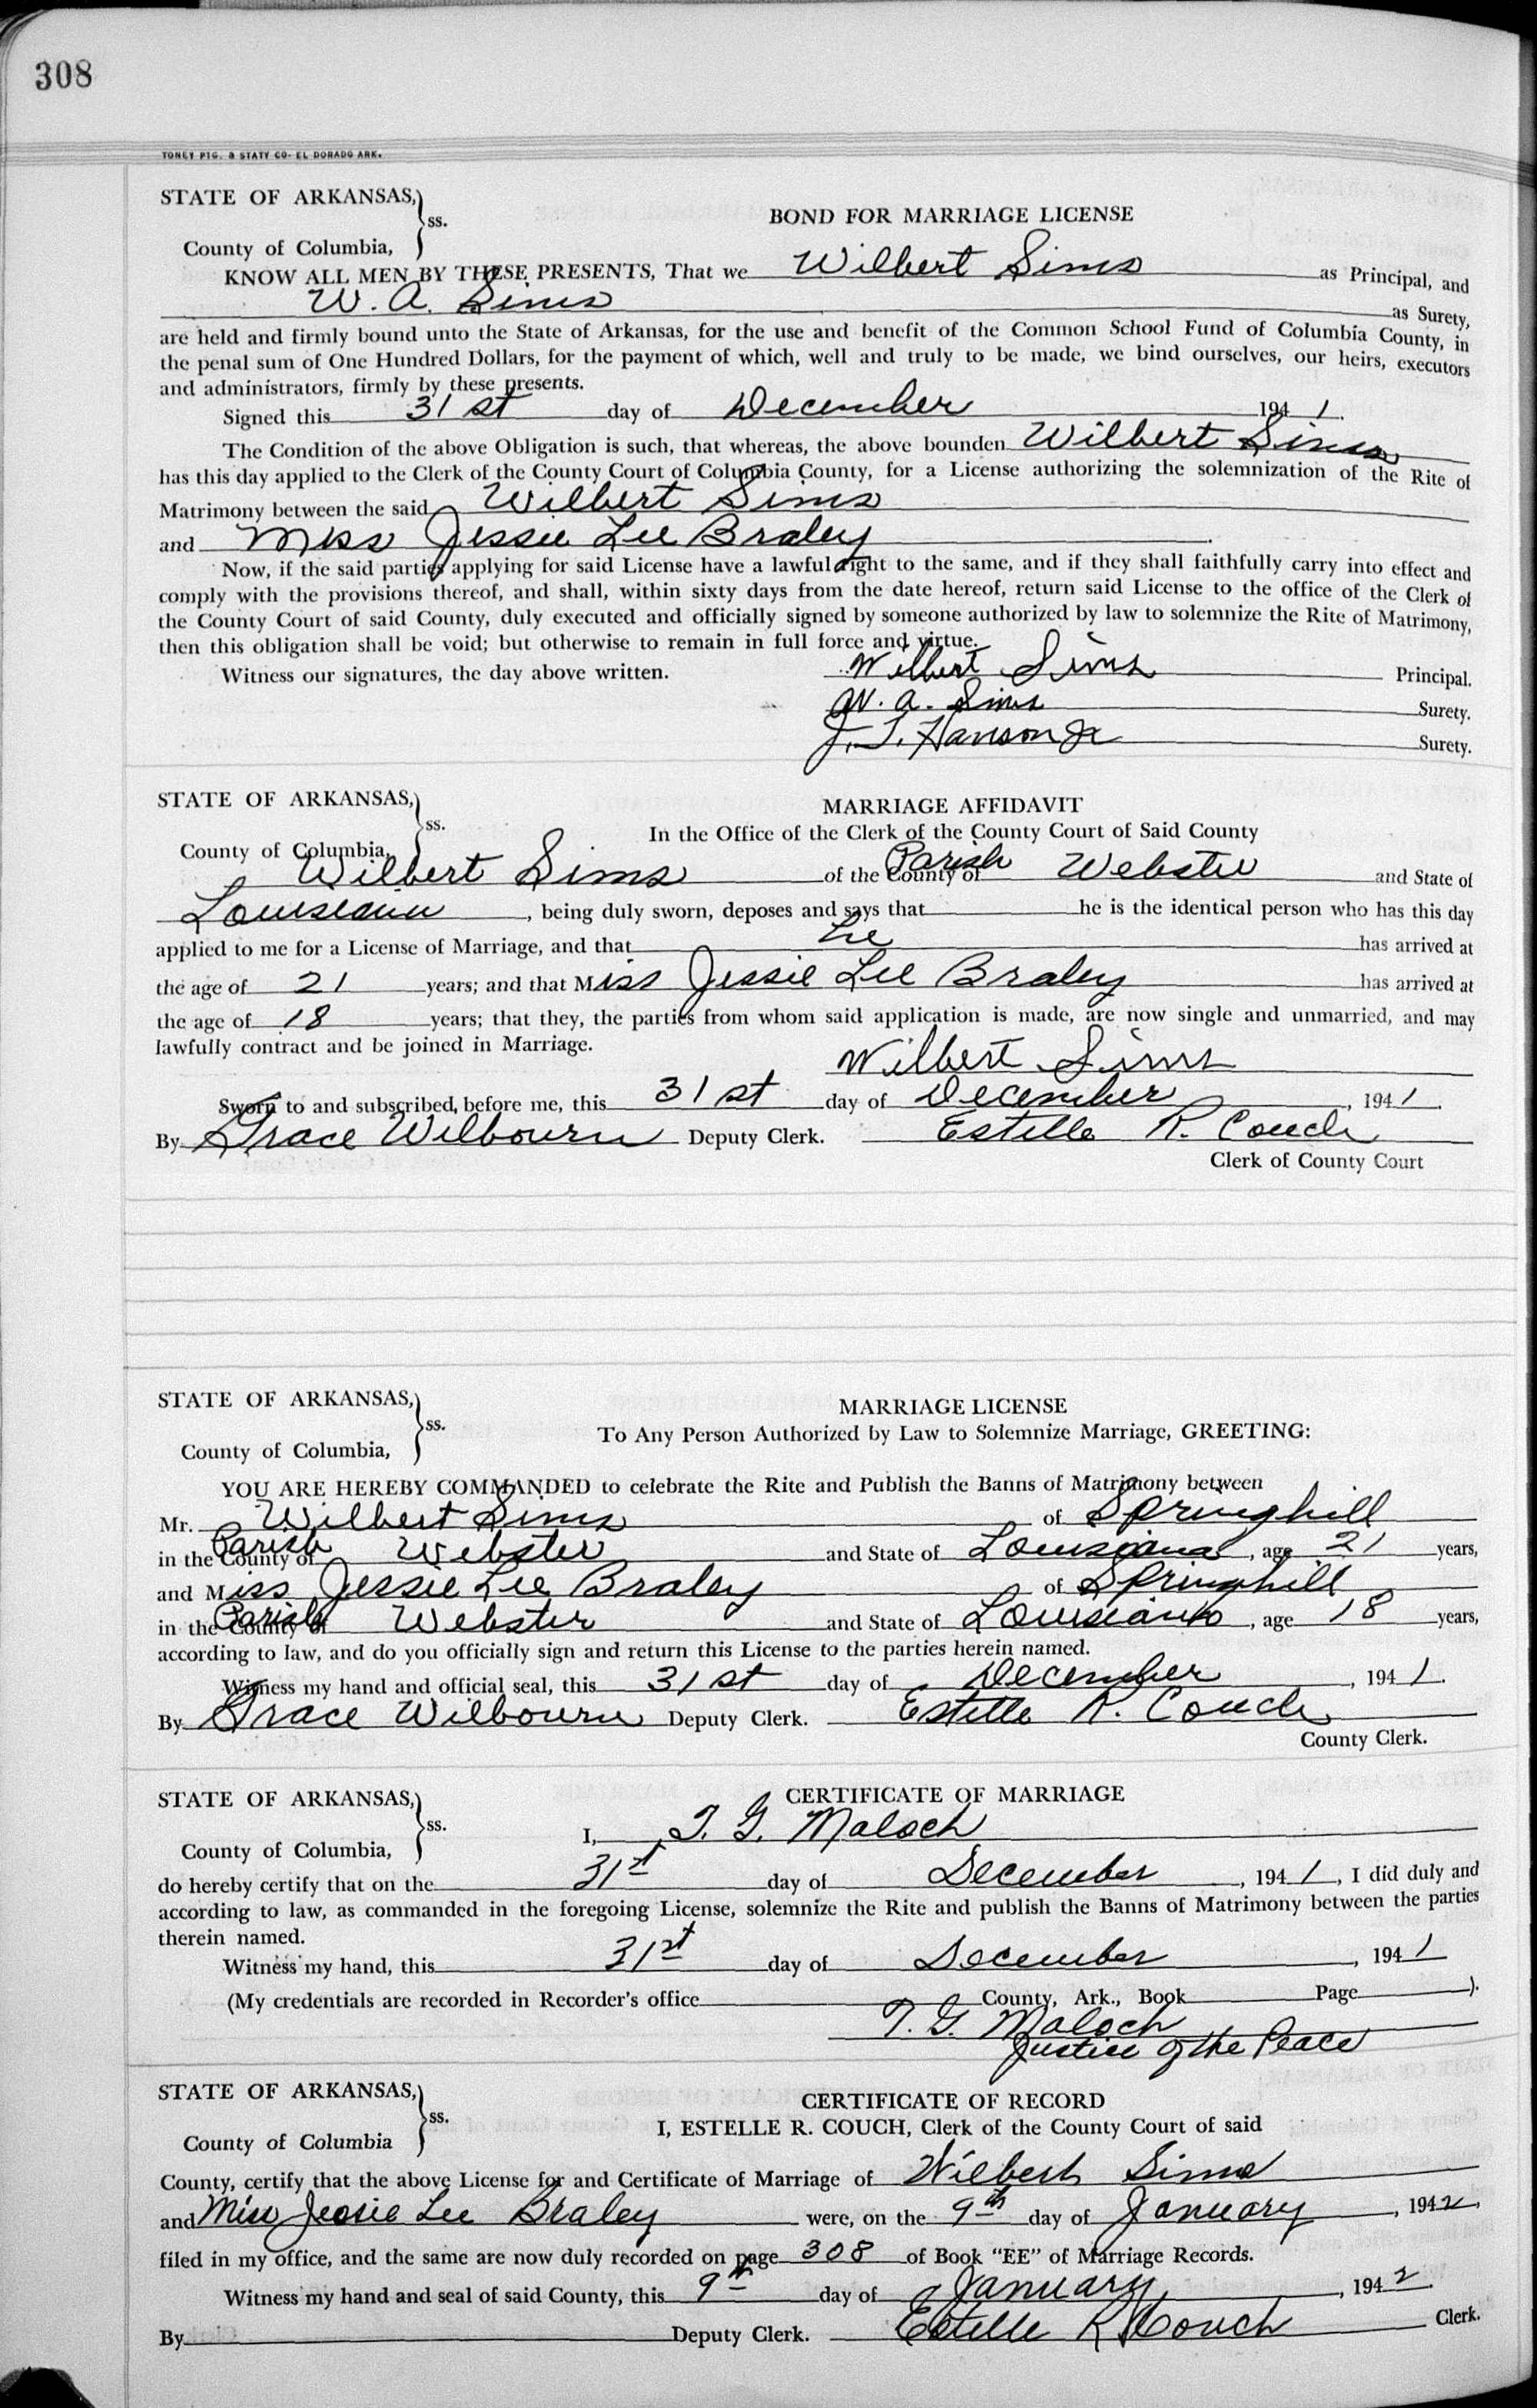 308
TONEY PTG. & STATY CO- EL DORADO ARK.
STATE OF ARKANSAS,
ss.
County of Columbia,
BOND FOR MARRIAGE LICENSE
KNOW ALL MEN BY THESE PRESENTS, That we Wilbert Sims as Principal, and
W. A. Sims as Surety,
are held and firmly bound unto the State of Arkansas, for the use and benefit of the Common School Fund of Columbia County, in
the penal sum of One Hundred Dollars, for the payment of which, well and truly to be made, we bind ourselves, our heirs, executors
and administrators, firmly by these presents.
Signed this 31st day of December 1941.
The Condition of the above Obligation is such, that whereas, the above bounden Wilbert Sims
has this day applied to the Clerk of the County Court of Columbia County, for a License authorizing the solemnization of the Rite of
Matrimony between the said Wilbert Sims
and Miss Jessie Lee Braley.
Now, if the said parties applying for said License have a lawful right to the same, and if they shall faithfully carry into effect and
comply with the provisions thereof, and shall, within sixty days from the date hereof, return said License to the office of the Clerk of
the County Court of said County, duly executed and officially signed by someone authorized by law to solemnize the Rite of Matrimony,
then this obligation shall be void; but otherwise to remain in full force and virtue.
Witness our signatures, the day above written. Wilbert Sims Principal.
W. A. Sims Surety.
J. T. Hanson Jr Surety.
STATE OF ARKANSAS,
ss.
County of Columbia,
MARRIAGE AFFIDAVIT
In the Office of the Clerk of the County Court of Said County
Wilbert Sims of the County of Parish Webster and State of
Louisiana, being duly sworn, deposes and says that he is the identical person who has this day
applied to me for a License of Marriage, and that he has arrived at
the age of 21 years; and that Miss Jessie Lee Braley has arrived at
the age of 18 years; that they, the parties from whom said application is made, are now single and unmarried, and may
lawfully contract and be joined in Marriage.
Wilbert Sims
Sworn to and subscribed before me, this 31st day of December, 1941.
By Grace Wilbourn Deputy Clerk. Estelle R. Couch
Clerk of County Court
STATE OF ARKANSAS,
ss.
County of Columbia,
MARRIAGE LICENSE
To Any Person Authorized by Law to Solemnize Marriage, GREETING:
YOU ARE HEREBY COMMANDED to celebrate the Rite and Publish the Banns of Matrimony between
Mr. Wilbert Sims of Springhill
in the County of Parish Webster and State of Louisiana, age 21 years,
and Miss Jessie Lee Braley of Springhill
in the County of Parish Webster and State of Louisiana, age 18 years,
according to law, and do you officially sign and return this License to the parties herein named.
Witness my hand and official seal, this 31st day of December, 1941.
By Grace Wilbourn Deputy Clerk. Estelle R. Couch
County Clerk.
STATE OF ARKANSAS,
ss.
County of Columbia,
CERTIFICATE OF MARRIAGE
I, T. G. Maloch
do hereby certify that on the 31st day of December, 1941, I did duly and
according to law, as commanded in the foregoing License, solemnize the Rite and publish the Banns of Matrimony between the parties
therein named.
Witness my hand, this 31st day of December, 1941
(My credentials are recorded in Recorder's office County, Ark., Book Page ).
T. G. Maloch
Justice of the Peace
STATE OF ARKANSAS,
ss.
County of Columbia
CERTIFICATE OF RECORD
I, ESTELLE R. COUCH, Clerk of the County Court of said
County, certify that the above License for and Certificate of Marriage of Wilbert Sims
and Miss Jessie Lee Braley were, on the 9th day of January, 1942,
filed in my office, and the same are now duly recorded on page 308 of Book "EE" of Marriage Records.
Witness my hand and seal of said County, this 9th day of January, 1942.
By Deputy Clerk. Estelle R Couch Clerk.